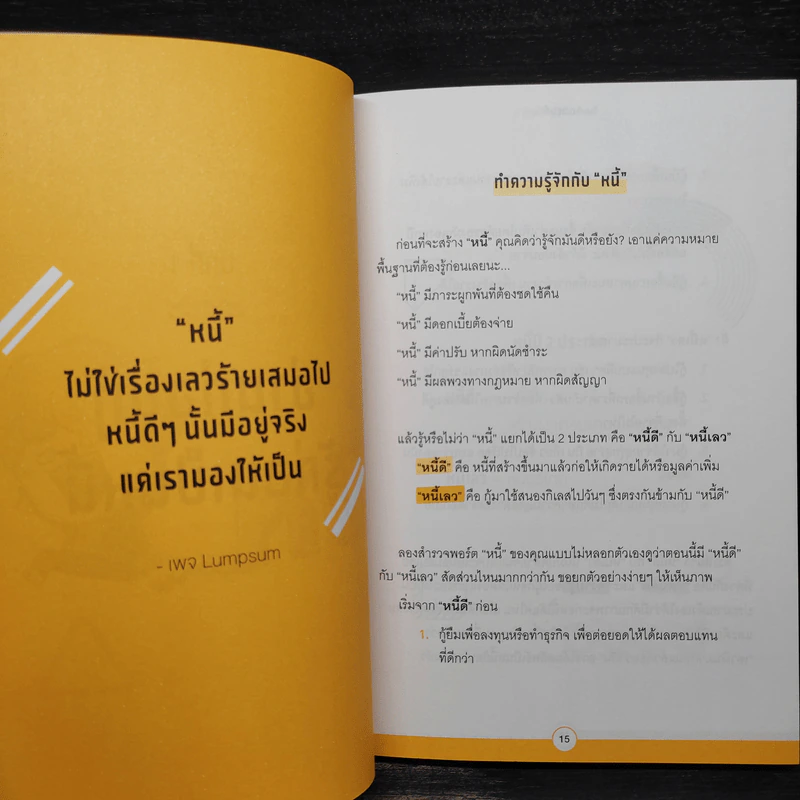 “หนี้”
ไม่ใช่เรื่องเลวร้ายเสมอไป
หนี้ดีๆ นั้นมีอยู่จริง
แค่เรามองให้เป็น
- เพจ Lumpsum
ทำความรู้จักกับ “หนี้”
ก่อนที่จะสร้าง “หนี้” คุณคิดว่ารู้จักมันดีหรือยัง? เอาแค่ความหมาย
พื้นฐานที่ต้องรู้ก่อนเลยนะ...
“หนี้” มีภาระผูกพันที่ต้องชดใช้คืน
“หนี้” มีดอกเบี้ยต้องจ่าย
“หนี้” มีค่าปรับ หากผิดนัดชำระ
“หนี้” มีผลพวงทางกฎหมาย หากผิดสัญญา
แล้วรู้หรือไม่ว่า “หนี้” แยกได้เป็น 2 ประเภท คือ “หนี้ดี” กับ “หนี้เลว”
“หนี้ดี” คือ หนี้ที่สร้างขึ้นมาแล้วก่อให้เกิดรายได้หรือมูลค่าเพิ่ม
“หนี้เลว” คือ กู้มาใช้สนองกิเลสไปวันๆ ซึ่งตรงกันข้ามกับ “หนี้ดี”
ลองสำรวจพอร์ต “หนี้” ของคุณแบบไม่หลอกตัวเองดูว่าตอนนี้มี “หนี้ดี”
กับ “หนี้เลว” สัดส่วนไหนมากกว่ากัน ขอยกตัวอย่างง่ายๆ ให้เห็นภาพ
เริ่มจาก “หนี้ดี” ก่อน
1. กู้ยืมเพื่อลงทุนหรือทำธุรกิจ เพื่อต่อยอดให้ได้ผลตอบแทน
ที่ดีกว่า
15